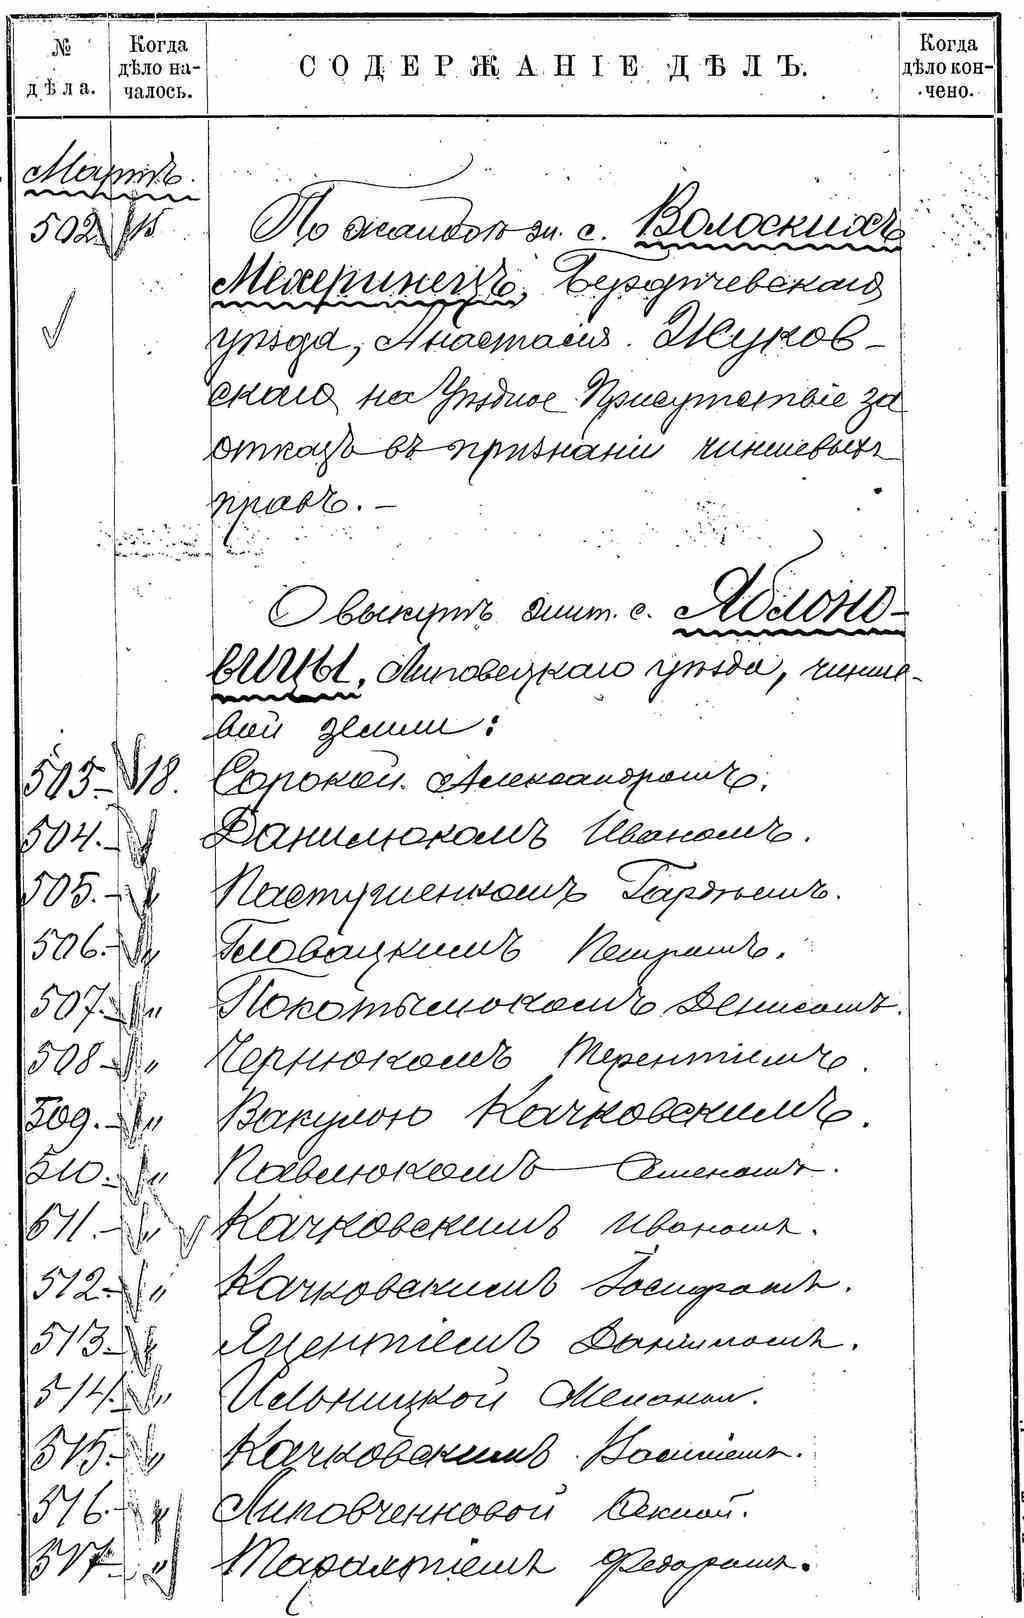 № дѣла. Когда дѣло началось. СОДЕРЖАНІЕ ДѢЛЪ. Когда дѣло кончено.
Мартъ.
502. 15 По жалобѣ жит. с. Волоскихъ
Мехеринецъ, Бердичевскаго
уѣзда, Анастасія Жуков-
скаго на Уѣздное Присутствіе за
отказъ въ признаніи чиншевыхъ
правъ. –
О выкупѣ жит. с. Яблоно-
вицы, Липовецкаго уѣзда, чинше-
вой земли:
503. 18. Сорокой Александромъ.
504. " Данилюкомъ Иваномъ.
505. " Пастушенкомъ Гордѣемъ.
506. " Гловацкимъ Петромъ.
507. " Покотылюкомъ Денисомъ.
508 " Чернюкомъ Терентіемъ.
509. " Вакулою Качковскимъ.
510. " Павлюкомъ Семеномъ.
511. " Качковскимъ Иваномъ.
512 " Качковскимъ Іосифомъ.
513 " Яцентіемъ Даниломъ.
514. " Ильницкой Меланіей.
515. " Качковскимъ Василіемъ.
516. " Липовченковой
517 " Федоромъ.